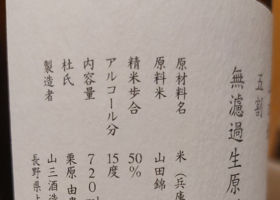 五割
無濾過生原
原材料名 米(兵庫
原料米 山田錦
精米歩合 50%
アルコール分 15度
内容量 720m
杜氏 栗原由貴
製造者 山三酒造
長野県上